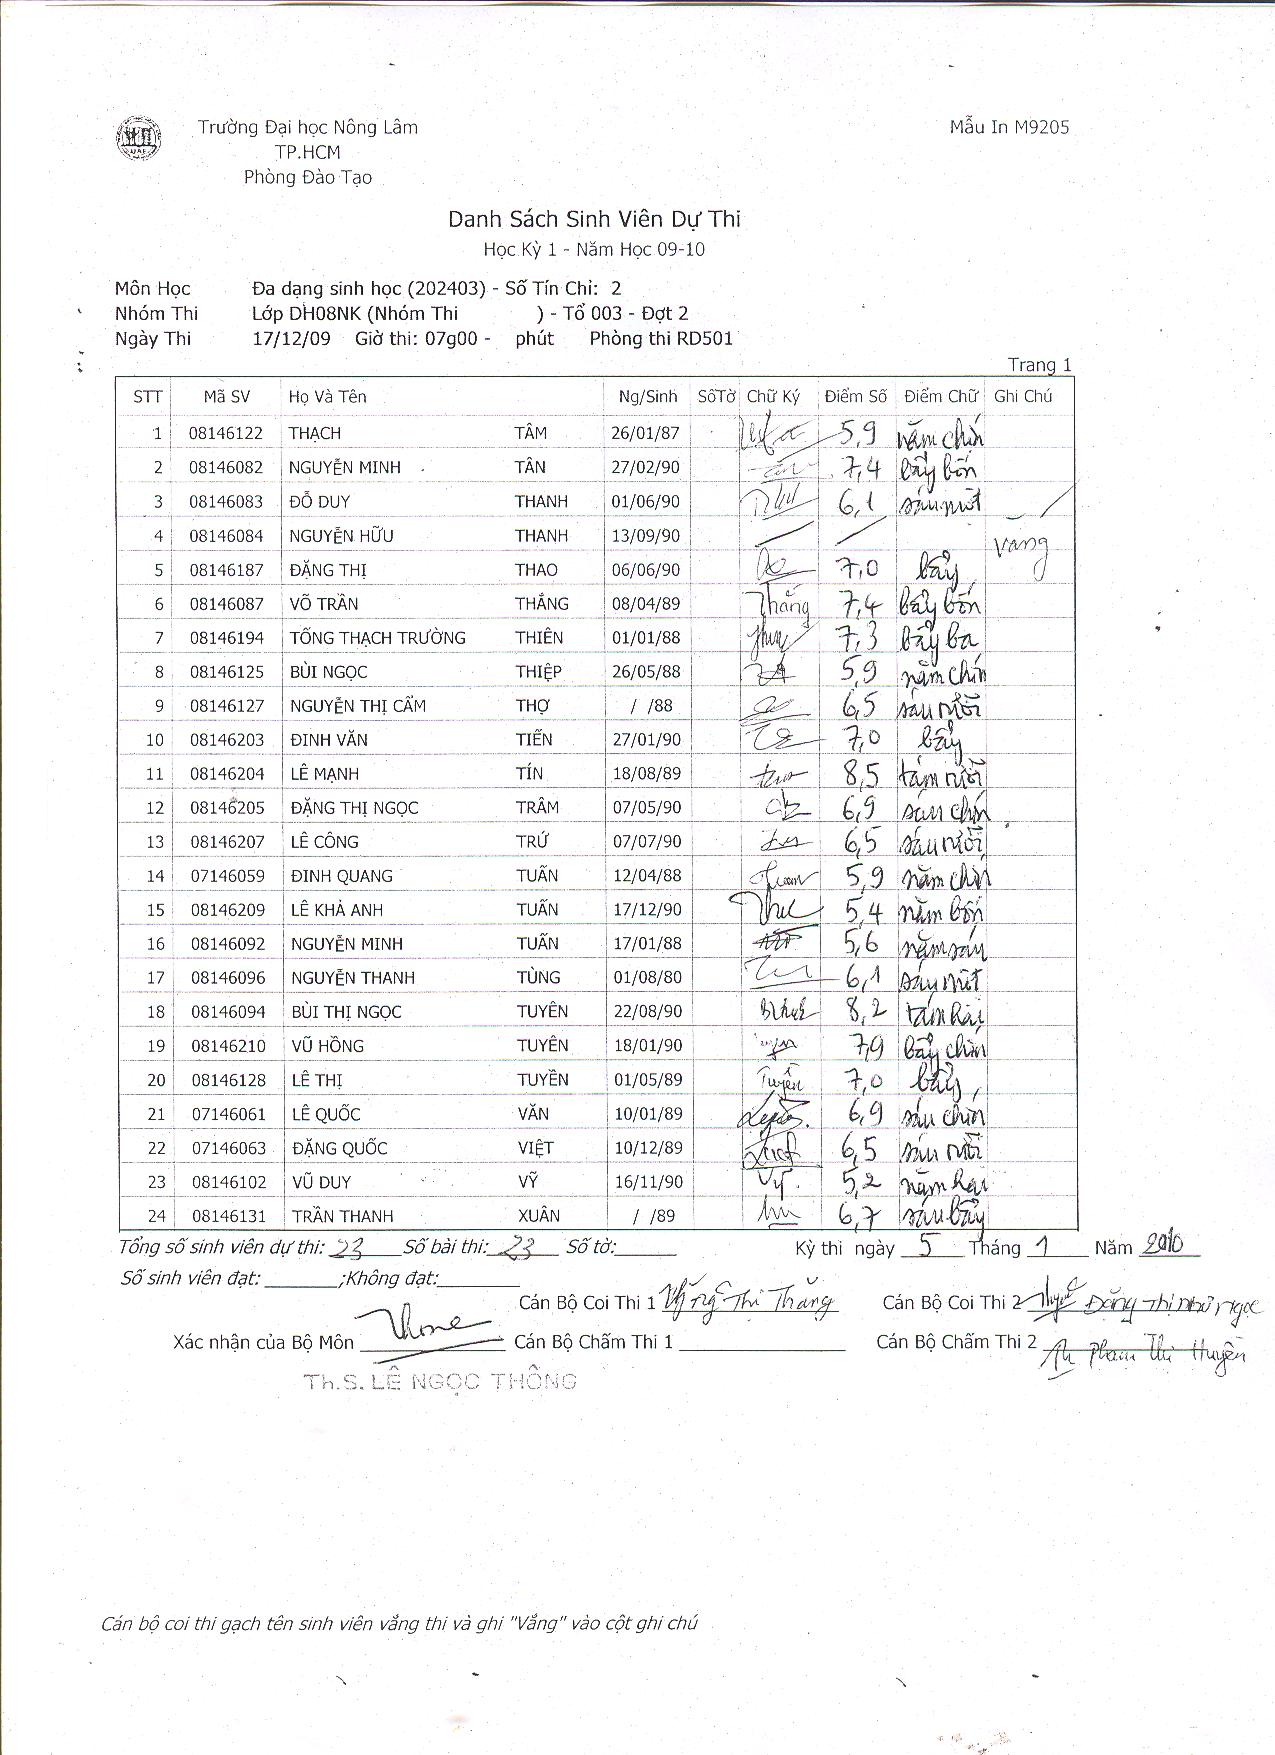 Trường Đại học Nông Lâm Mẫu In M9205
TP.HCM
Phòng Đào Tạo
Danh Sách Sinh Viên Dự Thi
Học Kỳ 1 - Năm Học 09-10
Môn Học Đa dạng sinh học (202403) - Số Tín Chỉ: 2
Nhóm Thi Lớp DH08NK (Nhóm Thi ) - Tổ 003 - Đợt 2
Ngày Thi 17/12/09 Giờ thi: 07g00 - phút Phòng thi RD501
Trang 1
STT Mã SV Họ Và Tên Ng/Sinh SốTờ Chữ Ký Điểm Số Điểm Chữ Ghi Chú
1 08146122 THẠCH TÂM 26/01/87 5,9 năm chín
2 08146082 NGUYỄN MINH TÂN 27/02/90 7,4 bẩy bốn
3 08146083 ĐỖ DUY THANH 01/06/90 6,1 sáu một
4 08146084 NGUYỄN HỮU THANH 13/09/90 vang
5 08146187 ĐẶNG THỊ THAO 06/06/90 7,0 bẩy
6 08146087 VÕ TRẦN THẮNG 08/04/89 Thắng 7,4 bẩy bốn
7 08146194 TỐNG THẠCH TRƯỜNG THIÊN 01/01/88 7,3 bẩy ba
8 08146125 BÙI NGỌC THIỆP 26/05/88 5,9 năm chín
9 08146127 NGUYỄN THỊ CẨM THỢ / /88 6,5 sáu rưỡi
10 08146203 ĐINH VĂN TIẾN 27/01/90 7,0 bẩy
11 08146204 LÊ MẠNH TÍN 18/08/89 8,5 tám rưỡi
12 08146205 ĐẶNG THỊ NGỌC TRÂM 07/05/90 6,9 sáu chín
13 08146207 LÊ CÔNG TRỨ 07/07/90 6,5 sáu rưỡi
14 07146059 ĐINH QUANG TUẤN 12/04/88 5,9 năm chín
15 08146209 LÊ KHẢ ANH TUẤN 17/12/90 5,4 năm bốn
16 08146092 NGUYỄN MINH TUẤN 17/01/88 5,6 năm sáu
17 08146096 NGUYỄN THANH TÙNG 01/08/80 6,1 sáu một
18 08146094 BÙI THỊ NGỌC TUYÊN 22/08/90 8,2 tám hai
19 08146210 VŨ HỒNG TUYÊN 18/01/90 7,9 bẩy chín
20 08146128 LÊ THỊ TUYỀN 01/05/89 Tuyền 7,0 bẩy
21 07146061 LÊ QUỐC VĂN 10/01/89 6,9 sáu chín
22 07146063 ĐẶNG QUỐC VIỆT 10/12/89 6,5 sáu rưỡi
23 08146102 VŨ DUY VỸ 16/11/90 Vỹ 5,2 năm hai
24 08146131 TRẦN THANH XUÂN / /89 6,7 sáu bẩy
Tổng số sinh viên dự thi: 23 Số bài thi: 23 Số tờ: Kỳ thi ngày 5 Tháng 1 Năm 2010
Số sinh viên đạt: ;Không đạt:
Cán Bộ Coi Thi 1 Thị Thắng Cán Bộ Coi Thi 2 Đặng Thị Như Ngọc
Xác nhận của Bộ Môn Cán Bộ Chấm Thi 1 Cán Bộ Chấm Thi 2 Phạm Thị Huyền
Th.S. LÊ NGỌC THÔNG
Cán bộ coi thi gạch tên sinh viên vắng thi và ghi "Vắng" vào cột ghi chú